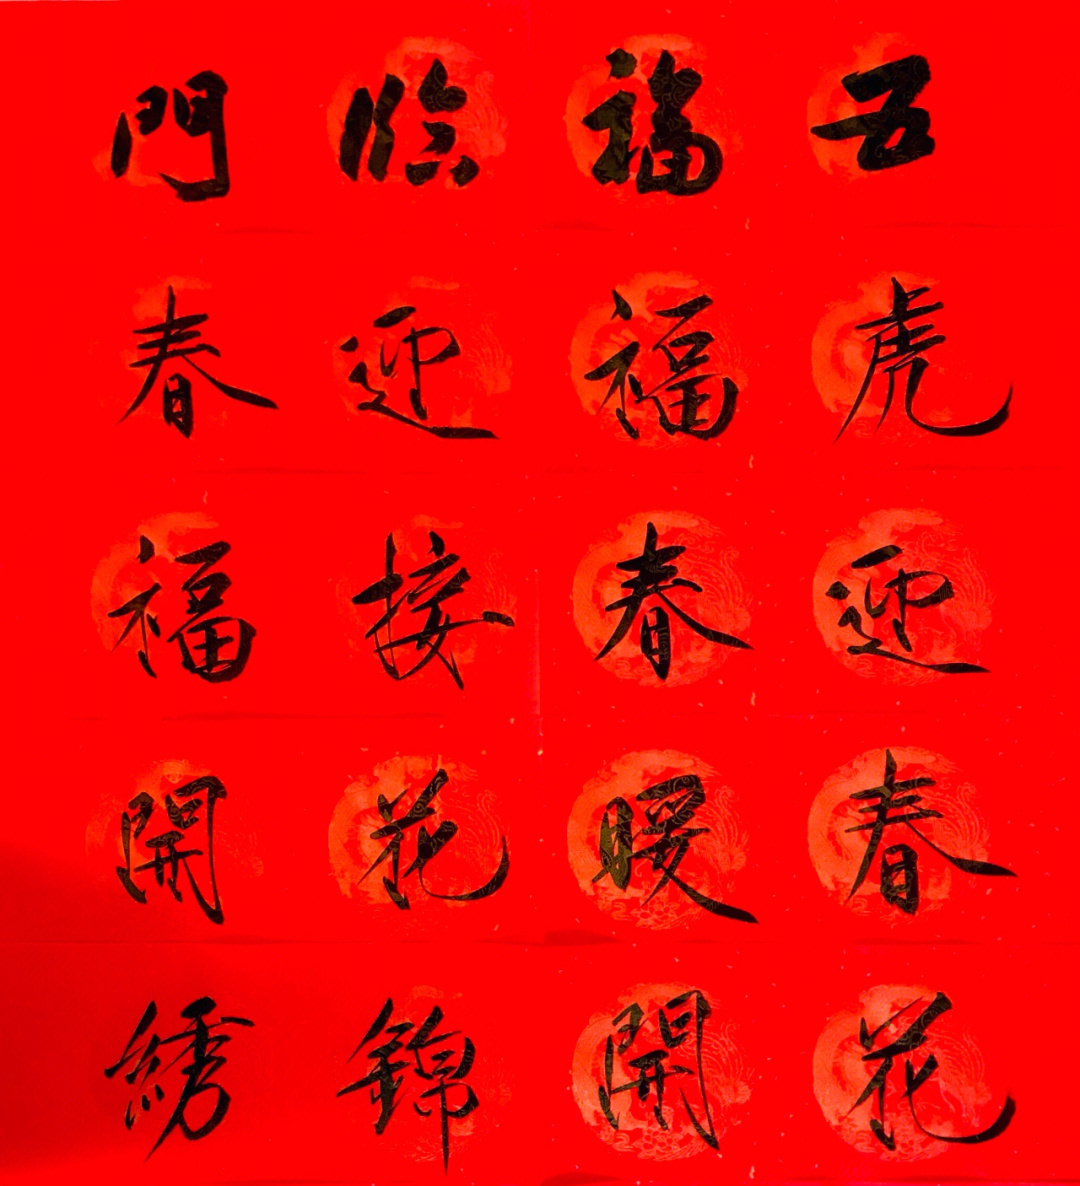 五福臨門
虎福迎春
迎春接福
春暖花開
花開錦綉